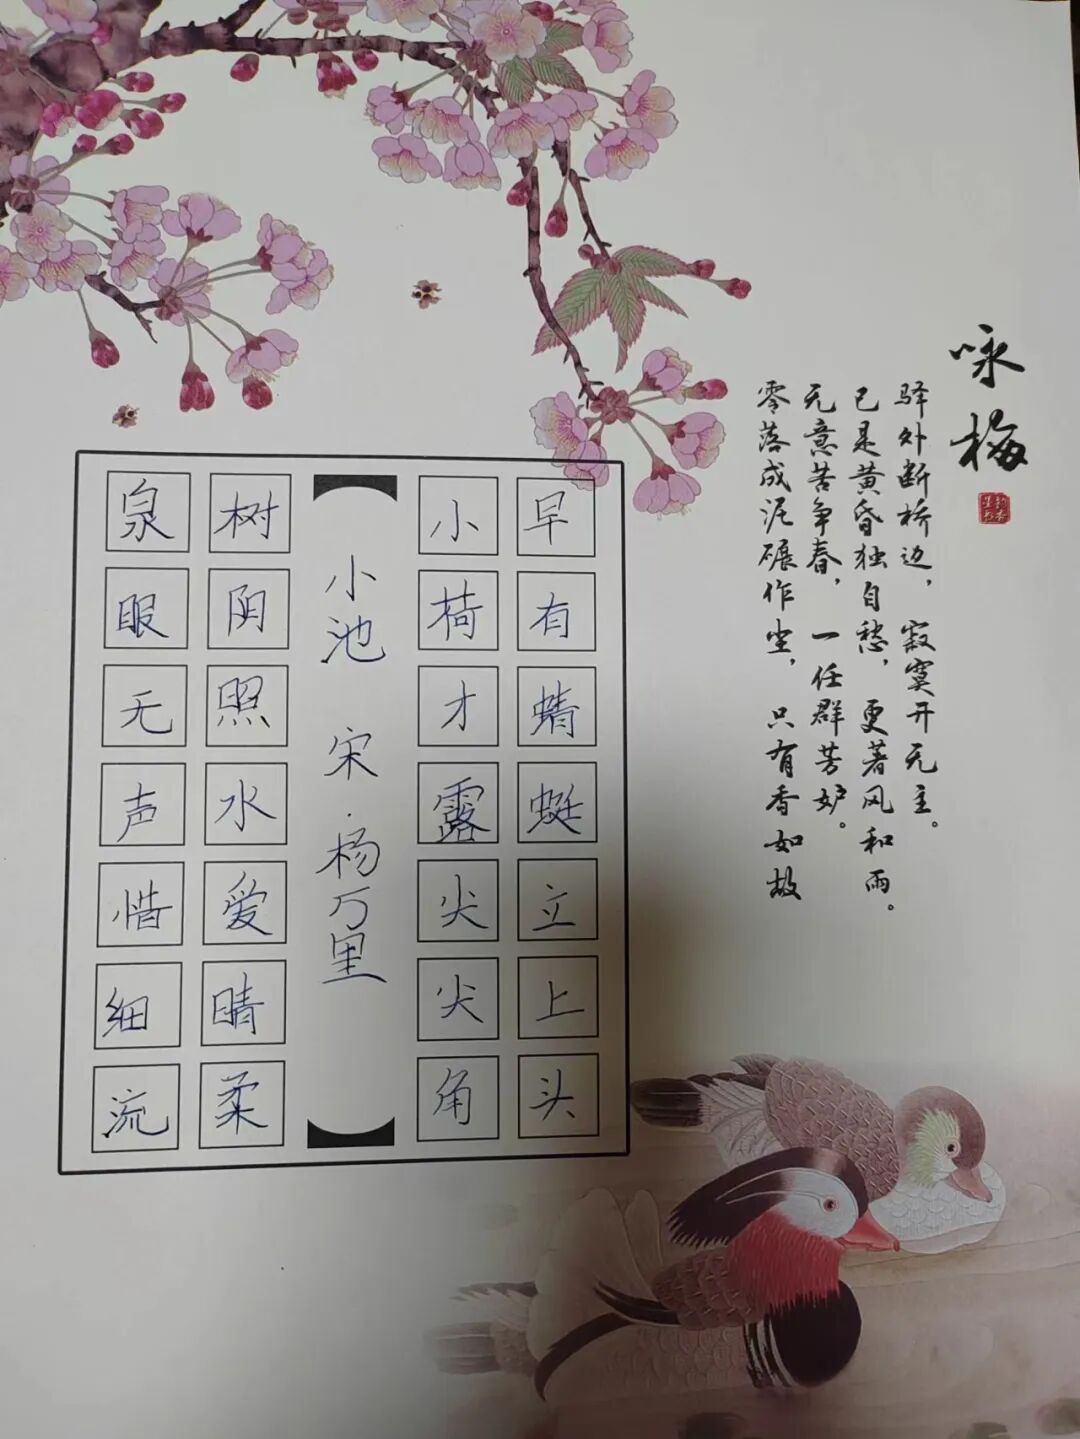 咏梅
驿外断桥边，寂寞开无主。
已是黄昏独自愁，更著风和雨。
无意苦争春，一任群芳妒。
零落成泥碾作尘，只有香如故
泉眼无声惜细流
树阴照水爱晴柔
小池 宋·杨万里
小荷才露尖尖角
早有蜻蜓立上头